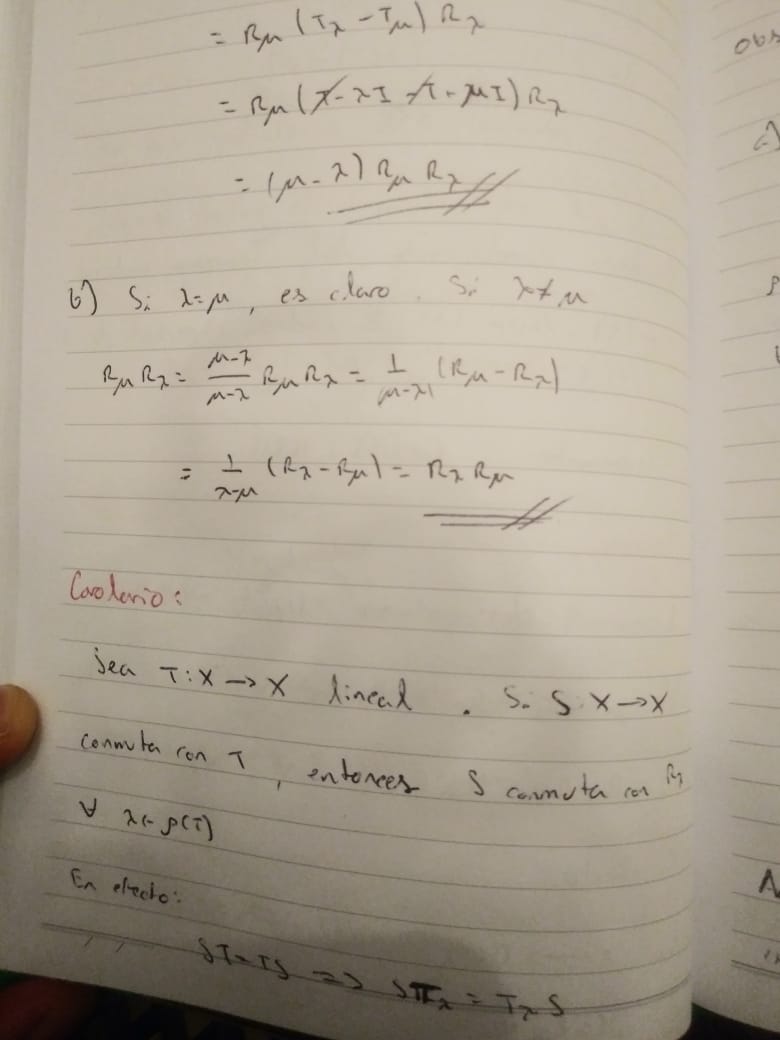 = Rμ (Tλ - Tμ) Rλ
= Rμ (T - λI - T + μI) Rλ
= (μ - λ) Rμ Rλ
b) Si λ=μ, es claro. Si λ≠μ
RμRλ = \frac{μ-λ}{μ-λ} RμRλ = \frac{1}{μ-λ} (Rμ - Rλ)
= \frac{1}{λ-μ} (Rλ - Rμ) = RλRμ
Corolario:
Sea T: X → X lineal. Si S: X → X
conmuta con T, entonces S conmuta con Rλ
∀ λ ∈ ρ(T)
En efecto:
ST = TS => STλ = TλS
obs
c)